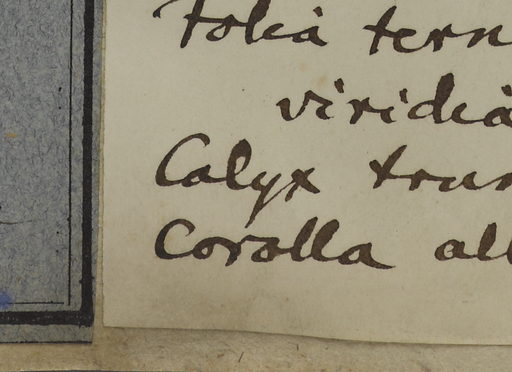 Folia tern
viridia
Calyx trun
Corolla all